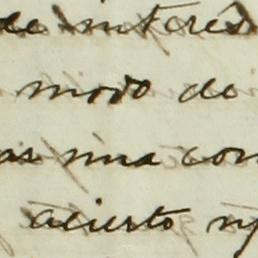 de interés
modo de
as una con
acierto